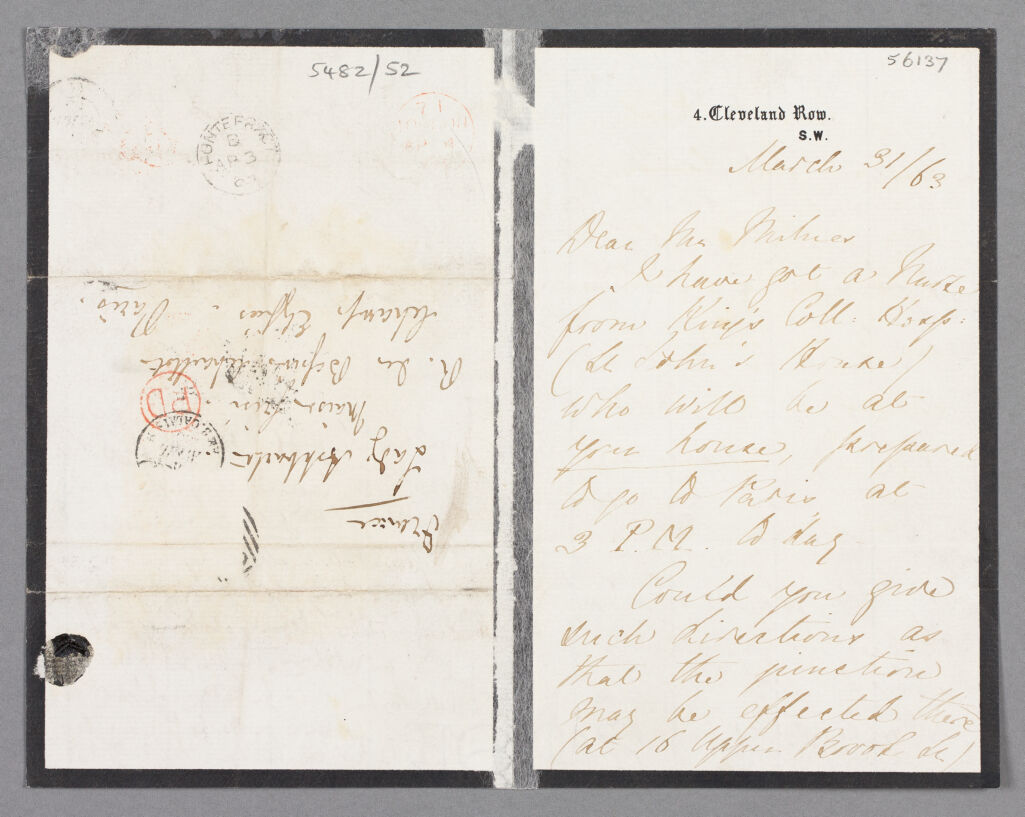 5482/52
PONTEFRACT
B
AP 3
63
PD
France
Lady Ashburton
Maison
R. de
Champs Elysées. Paris.
56137
4. Cleveland Row.
S.W.
March 31/63
Dear Mr Milnes
I have got a Nurse
from King's Coll: Hosp:
(St John's House)
who will be at
your house, prepared
to go to Paris at
3 P.M. to day
Could you give
such directions as
that the junction
may be effected there
(at 16 Upper Brook St)